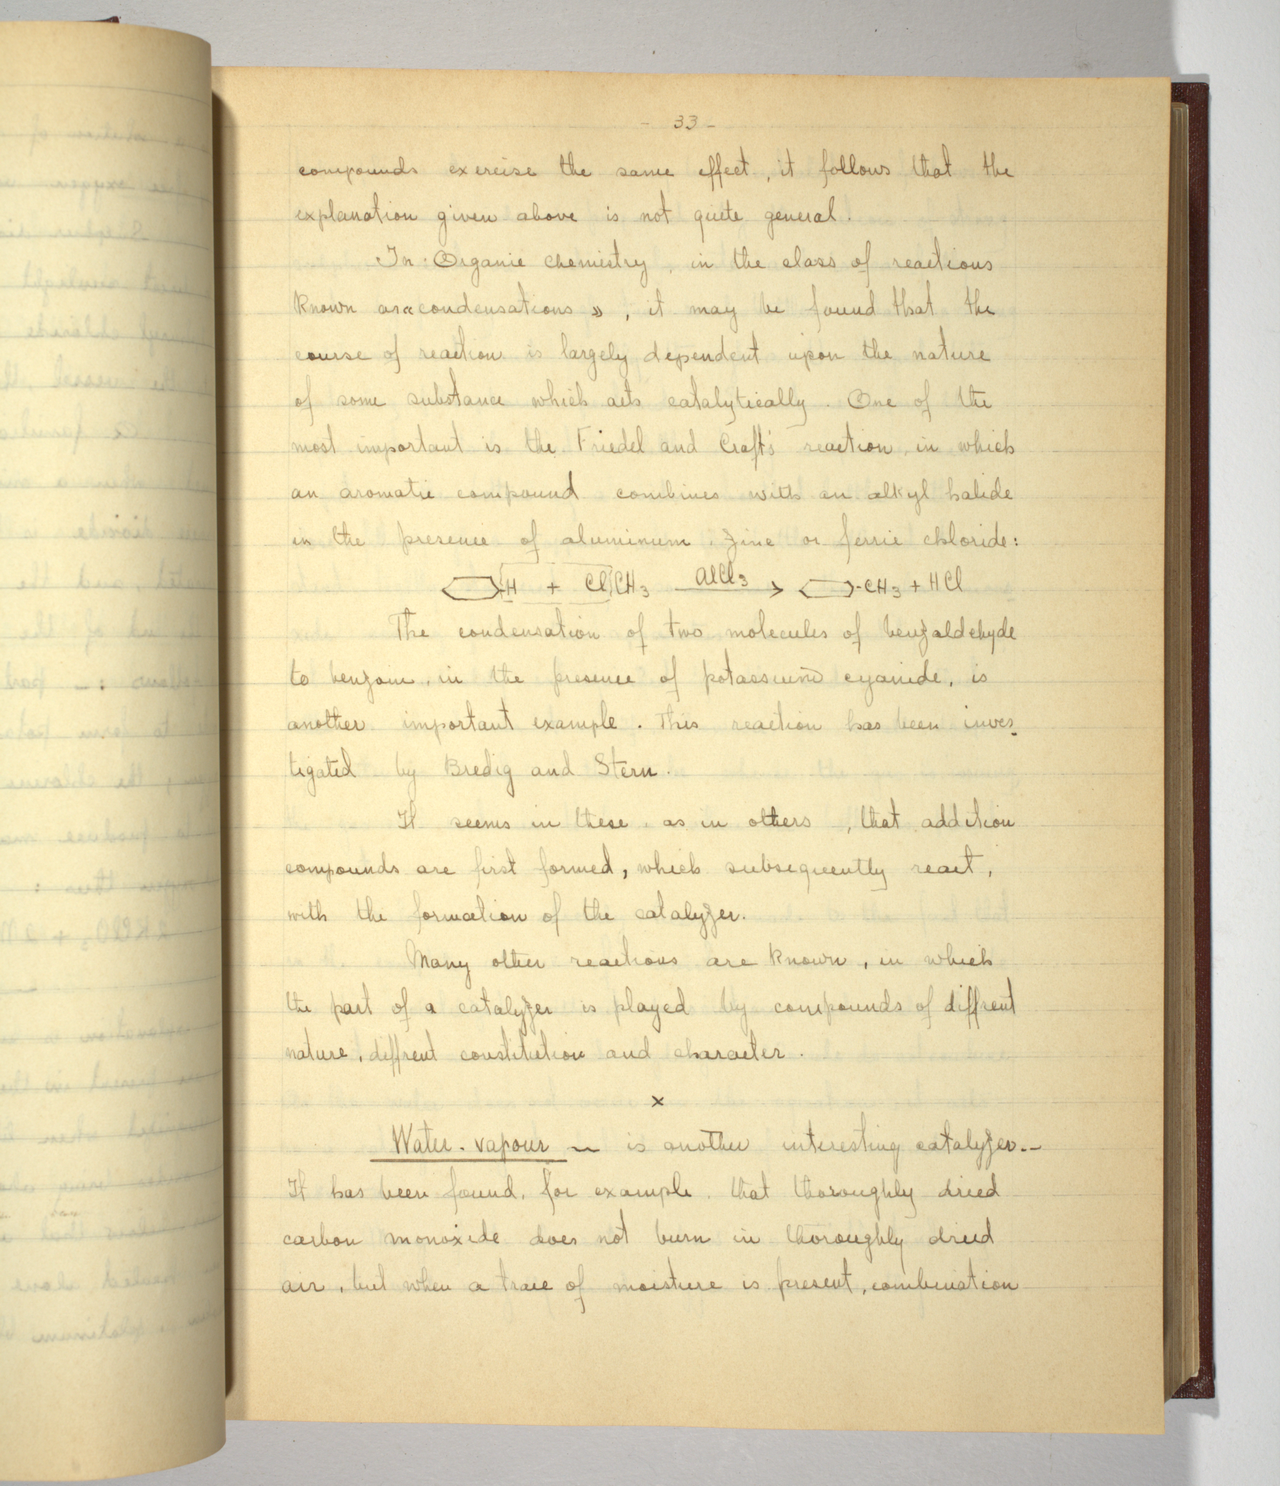 - 33 -
compounds exercise the same effect, it follows that the
explanation given above is not quite general.
In Organic chemistry, in the class of reactions
known as « condensations », it may be found that the
course of reaction is largely dependent upon the nature
of some substance which acts catalytically. One of the
most important is the Friedel and Craft's reaction, in which
an aromatic compound combines with an alkyl halide
in the presence of aluminum, zinc or ferric chloride:
H + Cl CH3 AlCl3 → -CH3 + HCl
The condensation of two molecules of benzaldehyde
to benzoin, in the presence of potassium cyanide, is
another important example. This reaction has been inves-
tigated by Bredig and Stern.
It seems in these, as in others, that addition
compounds are first formed, which subsequently react,
with the formation of the catalyzer.
Many other reactions are known, in which
the part of a catalyzer is played by compounds of diffrent
nature, diffrent constitution and character.
×
Water-vapour ~ is another interesting catalyzer.-
It has been found, for example, that thoroughly dried
carbon monoxide does not burn in thoroughly dried
air, but when a trace of moisture is present, combination